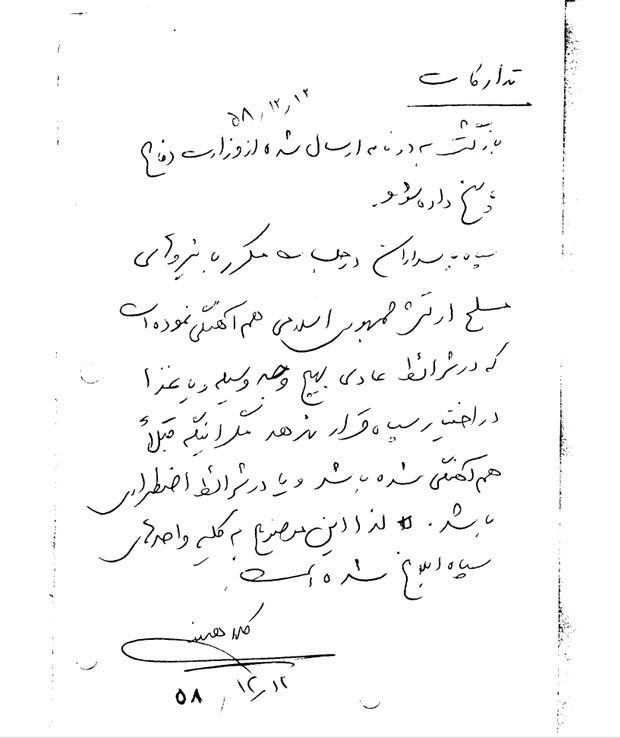 تدارکات
۵۸٫۱۲٫۱۲
بازگشت به دو نامه ارسال شده از وزارت دفاع
پاسخ داده شود.
سپاه پاسداران در جلسات مکرر با نیروهای
مسلح ارتش جمهوری اسلامی هم‌آهنگی نموده است
که در شرائط عادی بهیچ وجه وسیله و یا غذا
در اختیار سپاه قرار ندهد مگر اینکه قبلاً
هم‌آهنگی شده باشد و یا در شرائط اضطراری
باشد. لذا این موضوع به کلیه واحدهای
سپاه ابلاغ شده است.
۵۸٫۱۲٫۱۲